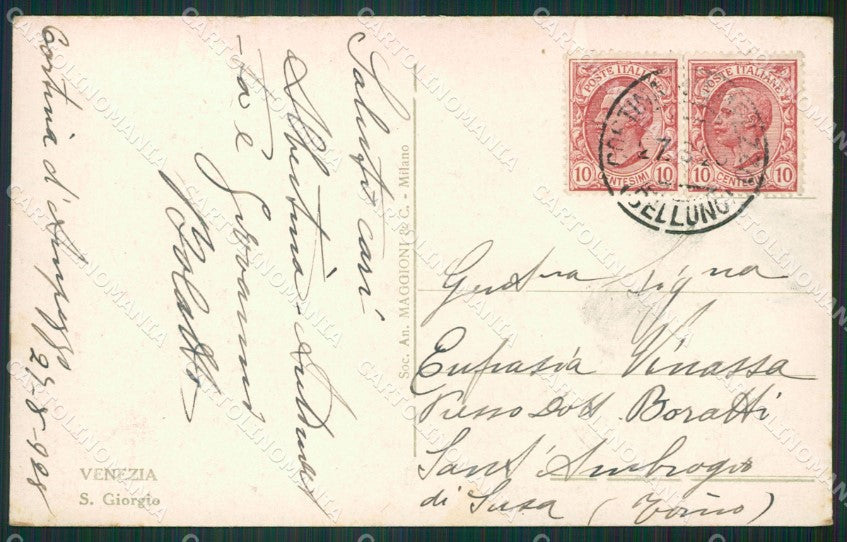 Cortina d'Ampezzo 27-8-928
Saluti cari
Albertina
-ta e Giovanni
VENEZIA
S. Giorgio
Soc. An. MAGGIONI & C. - Milano
POSTE ITALIANE
10 CENTESIMI 10
POSTE ITALIANE
10 CENTESIMI 10
BELLUNO
Gent.ma Sig.na
Eufrasia Vinassa
Presso Dott Boratti
Sant'Ambrogio
di Susa (Torino)
CARTOLINOMANIA